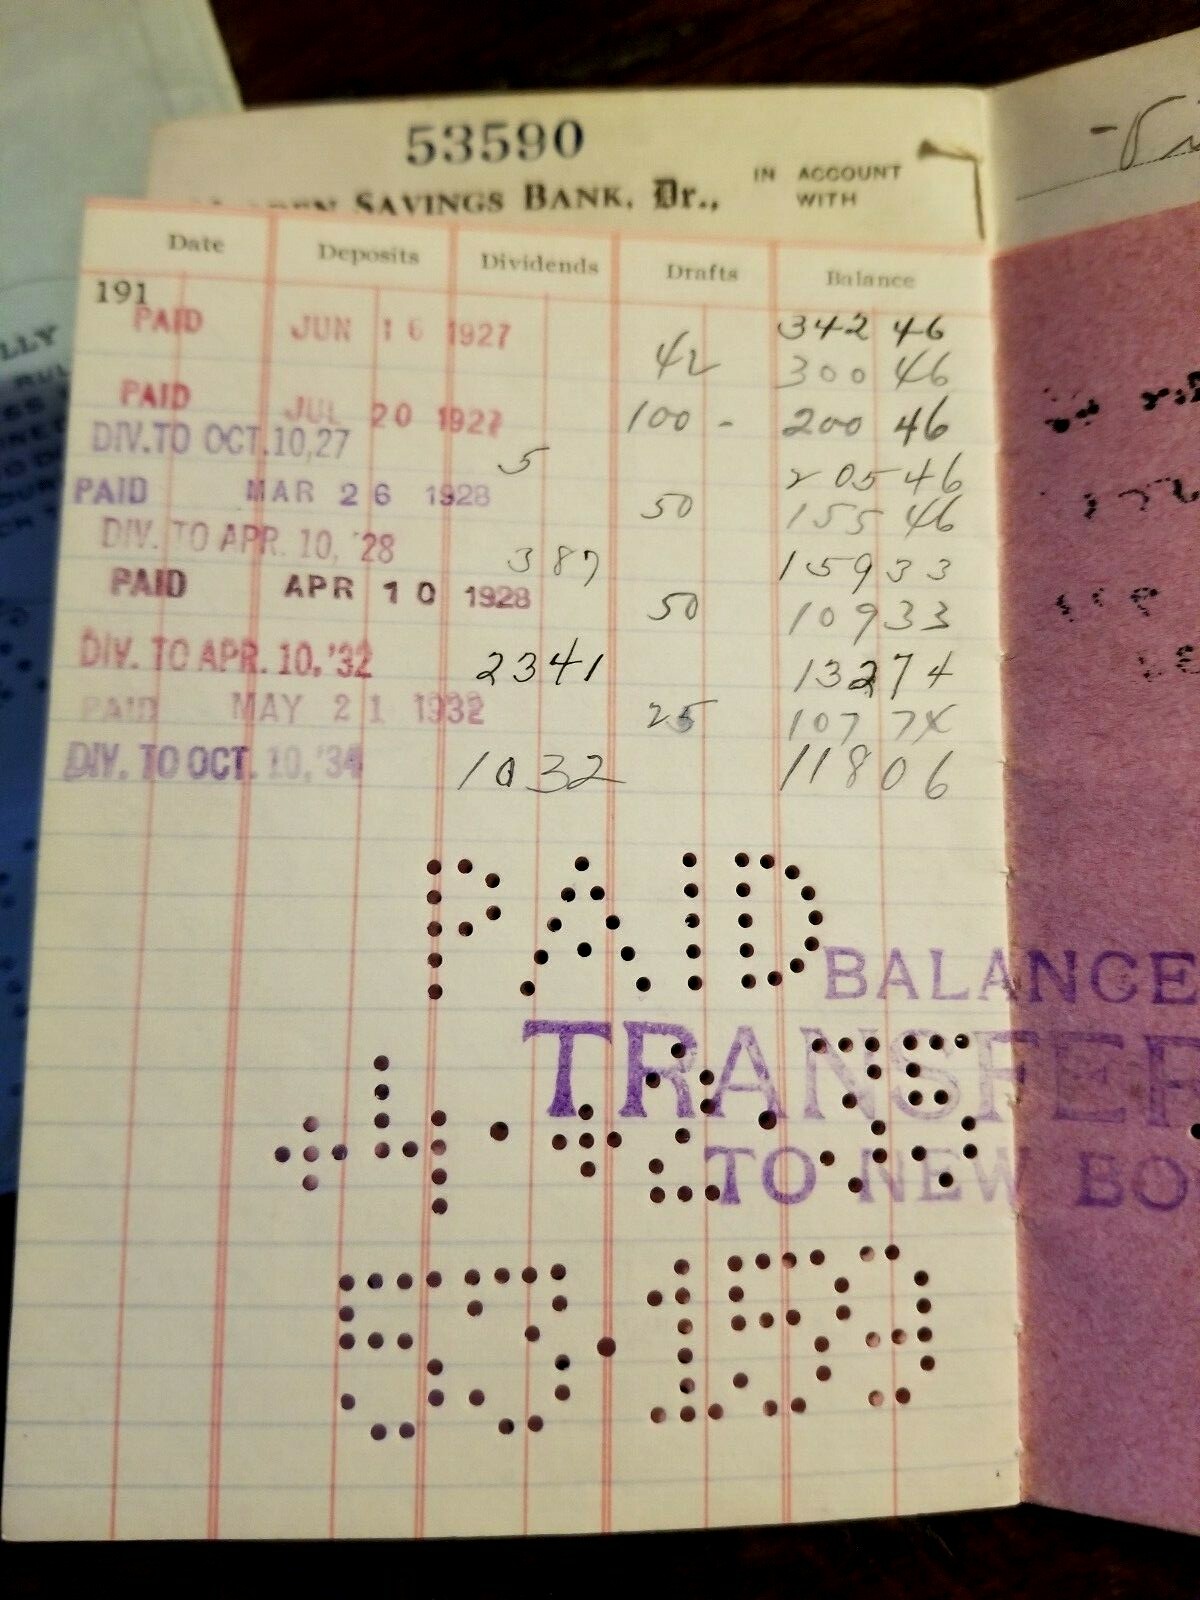 53590
SAVINGS BANK, Dr., IN ACCOUNT WITH
Date Deposits Dividends Drafts Balance
191
342 46
PAID JUN 16 1927 42 300 46
PAID JUL 20 1927 100 - 200 46
DIV. TO OCT. 10, 27 5 205 46
PAID MAR 26 1928 50 155 46
DIV. TO APR. 10, '28 3 87 159 33
PAID APR 10 1928 50 109 33
DIV. TO APR. 10, '32 23 41 132 74
PAID MAY 21 1932 25 107 74
DIV. TO OCT. 10, '34 10 32 118 06
PAID
BALANCE
TRANSFER
TO NEW BO
53·159
LLY